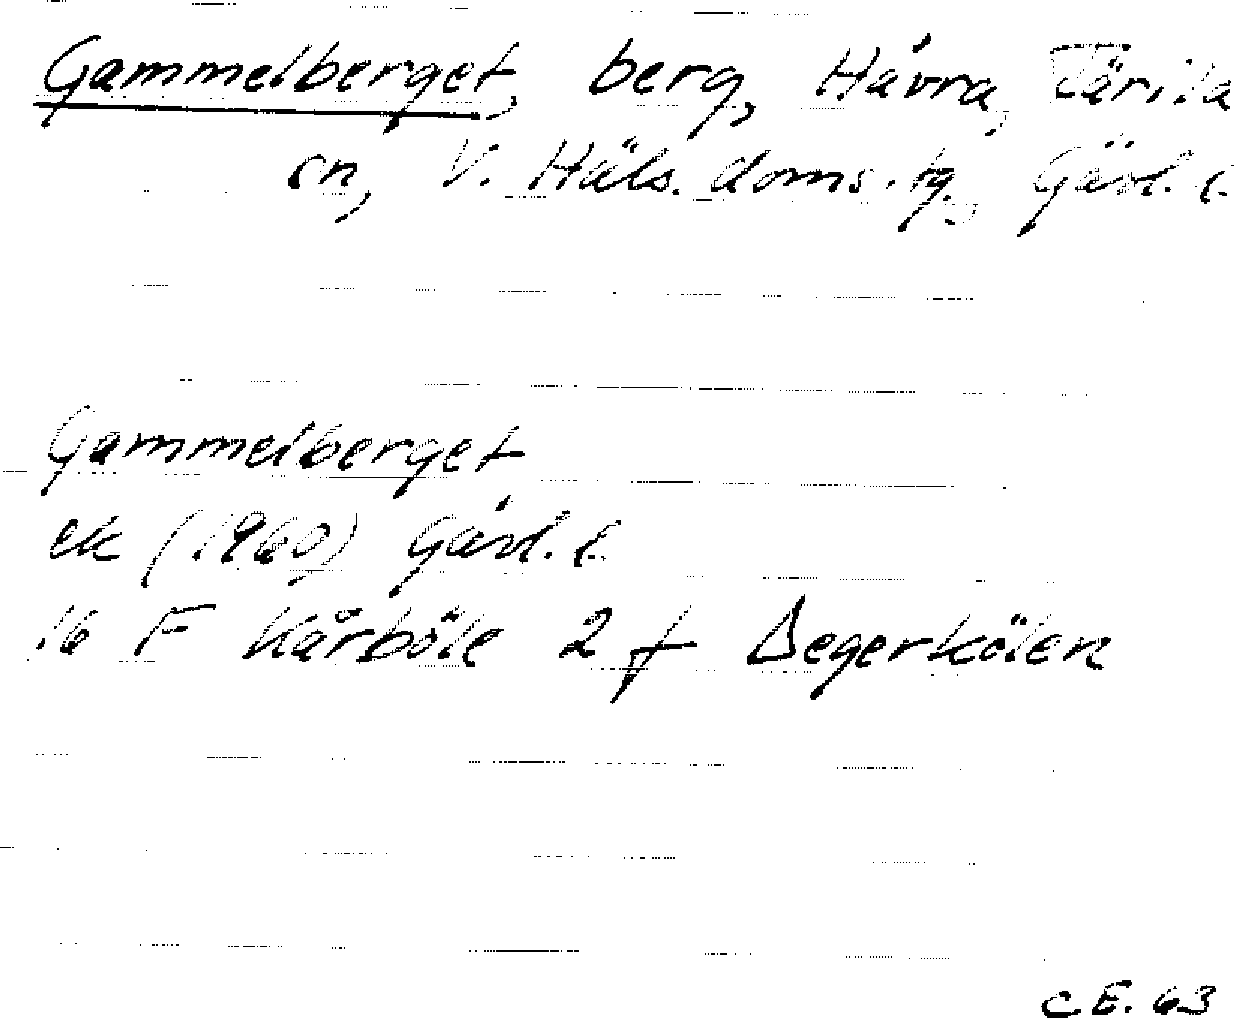 Gammelberget, berg, Håvra, Färila
sn, V. Häls. doms.tg., Gävl. l.
Gammelberget
ek (1960) Gävl. l.
16 F Kårböle 2 f Degerkölen
C.E. 63